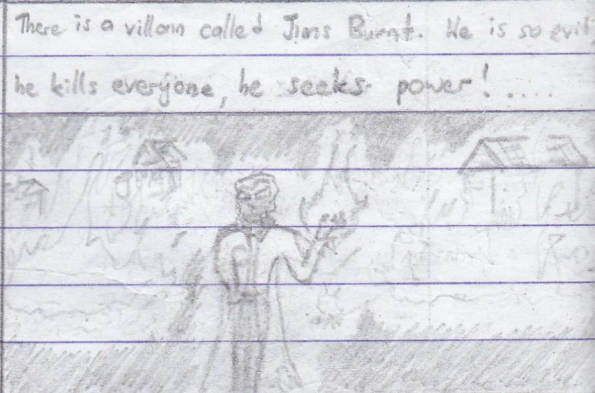 There is a villann called Jims Burnt. He is so evil,
he kills everyone, he seeks power!.....